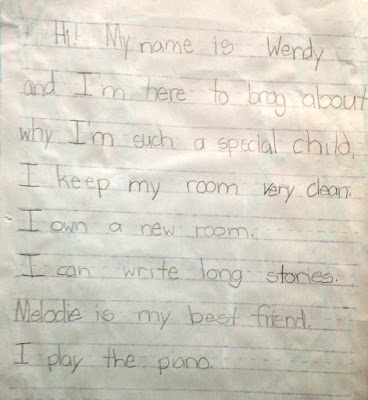 Hi! My name is Wendy
and I'm here to brag about
why I'm such a special child,
I keep my room very clean.
I own a new room.
I can write long stories.
Melodie is my best friend.
I play the piano.